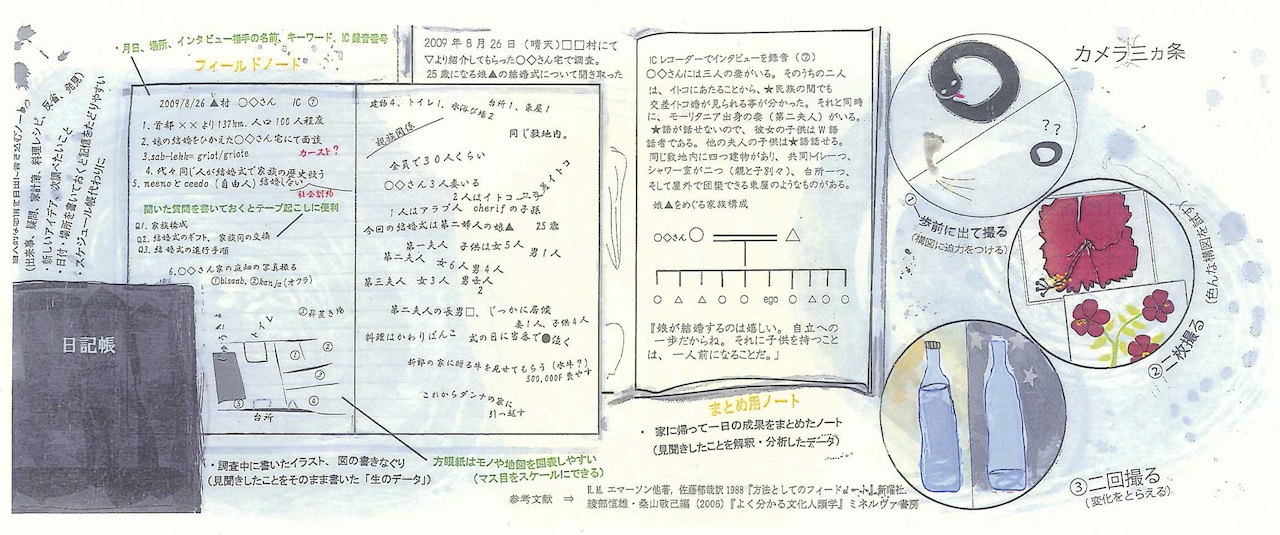 ・月日、場所、インタビュー相手の名前、キーワード、IC録音番号
フィールドノート
(出来事、疑問、家計簿、料理レシピ、反省、発見)
・新しいアイデア、次調べたいこと
・日付・場所を書いておくと記憶をたどりやすい
・スケジュール帳代わりに
日記帳
2009/8/26 ▲村 〇◇さん IC ⑦
1. 首都××より137km. 人口100人程度
2. 娘の結婚をひかえた〇◇さん宅にて面談
3.sab-lekk= griot/griote
カースト?
4. 代々同じ人が結婚式で家族の歴史歌う
5. meenoとceedo(自由人)結婚しない
社会制約
聞いた質問を書いておくとテープ起こしに便利
Q1. 家族構成
Q2. 結婚式のギフト、家族間の交換
Q3. 結婚式の進行手順
6.〇◇さん家の庭畑の写真撮る
①bisaab, ②kanja(オクラ)
トイレ
① ②
③
③ ④
台所
建物4、トイレ1、水浴び場2 台所1、東屋1
親族関係
同じ敷地内。
全員で30人くらい
〇◇さん3人妻いる
2人はイトコ
交差イトコ
1人はアラブ人 cherifの子孫
今回の結婚式は第二婦人の娘▲ 25歳
第一夫人 子供は女5人 男1人
第二夫人 女6人 男4人
第三夫人 女3人 男2人
第二夫人の長男□、じっかに居候
妻1人、子供4人
料理はかわりばんこ 式の日に当番で●焼く
新郎の家に贈る牛を見せてもらう(水牛?)
500,000F 費やす
これからダンナの家に
引っ越す
・調査中に書いたイラスト、図の書きなぐり
(見聞きしたことをそのまま書いた「生のデータ」)
方眼紙はモノや地図を図表しやすい
(マス目をスケールにできる)
2009年8月26日(晴天)□□村にて
▽より紹介してもらった〇◇さん宅で調査。
25歳になる娘▲の結婚式について聞き取った
ICレコーダーでインタビューを録音(⑦)
〇◇さんには三人の妻がいる。そのうちの二人
は、イトコにあたることから、★民族の間でも
交差イトコ婚が見られる事が分かった。それと同時
に、モーリタニア出身の妻(第二夫人)がいる。
★語が話せないので、彼女の子供はW語
話者である。他の夫人の子供は★語話せる。
同じ敷地内に四つ建物があり、共同トイレ一つ、
シャワー室が二つ(親と子別々)、台所一つ、
そして屋外で団欒できる東屋のようなものがある。
娘▲をめぐる家族構成
〇◇さん
ego
『娘が結婚するのは嬉しい。自立への
一歩だからね。それに子供を持つこと
は、一人前になることだ。」
まとめ用ノート
・家に帰って一日の成果をまとめたノート
(見聞きしたことを解釈・分析したデータ)
参考文献 ⇒ R.M. エマーソン他著, 佐藤郁哉訳 1988『方法としてのフィールドノート』新曜社.
綾部恒雄・桑山敬己編 (2006)『よく分かる文化人類学』ミネルヴァ書房
カメラ三ヵ条
??
①一歩前に出て撮る
(構図に迫力をつける)
②一枚撮る
(色んな構図を試す)
③二回撮る
(変化をとらえる)